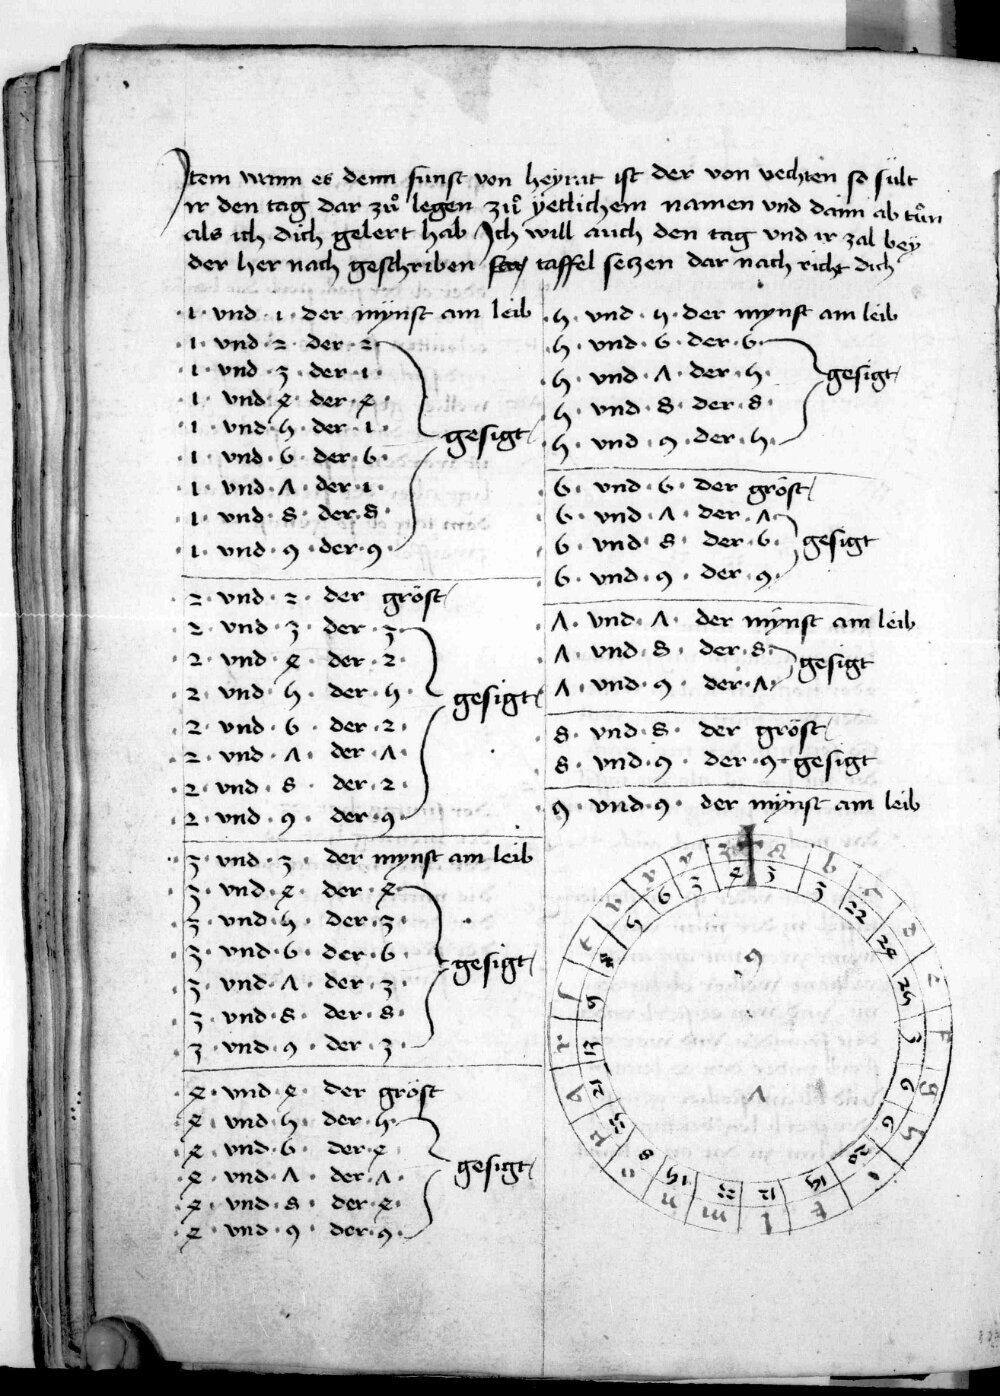 Item wann es denn sunst von heyrat ist der von vechten so sült
ir den tag dar zů legen zů yetlichem namen vnd dann ab tůn
als ich dich gelert hab Ich will auch den tag vnd ir zal bey
der her nach geschriben taffel seczen dar nach richt dich
1 · vnd · 1 · der mynst am leib
1 · vnd · 2 · der · 2 ·
1 · vnd · 3 · der · 1 ·
1 · vnd · 4 · der · 4 ·
1 · vnd · 5 · der · 1 ·
gesigt
1 · vnd · 6 · der · 6 ·
1 · vnd · 7 · der · 1 ·
1 · vnd · 8 · der · 8 ·
1 · vnd · 9 · der · 9 ·
2 · vnd · 2 · der gröst
2 · vnd · 3 · der · 3 ·
2 · vnd · 4 · der · 2 ·
2 · vnd · 5 · der · 5 ·
gesigt
2 · vnd · 6 · der · 2 ·
2 · vnd · 7 · der · 7 ·
2 · vnd · 8 · der · 2 ·
2 · vnd · 9 · der · 9 ·
3 · vnd · 3 · der mynst am leib
3 · vnd · 4 · der · 4 ·
3 · vnd · 5 · der · 3 ·
3 · vnd · 6 · der · 6 ·
gesigt
3 · vnd · 7 · der · 3 ·
3 · vnd · 8 · der · 8 ·
3 · vnd · 9 · der · 3 ·
4 · vnd · 4 · der gröst
4 · vnd · 5 · der · 5 ·
4 · vnd · 6 · der · 4 ·
gesigt
4 · vnd · 7 · der · 7 ·
4 · vnd · 8 · der · 4 ·
4 · vnd · 9 · der · 9 ·
5 · vnd · 5 · der mynst am leib
5 · vnd · 6 · der · 6 ·
5 · vnd · 7 · der · 5 ·
gesigt
5 · vnd · 8 · der · 8 ·
5 · vnd · 9 · der · 5 ·
6 · vnd · 6 · der gröst
6 · vnd · 7 · der · 7 ·
6 · vnd · 8 · der · 6 ·
gesigt
6 · vnd · 9 · der · 9 ·
7 · vnd · 7 · der mynst am leib
7 · vnd · 8 · der · 8 ·
gesigt
7 · vnd · 9 · der · 7 ·
8 · vnd · 8 · der gröst
8 · vnd · 9 · der · 9 · gesigt
9 · vnd · 9 · der mynst am leib
a b c d e f g h i k l m n o p q r s t v x
3 3 22 24 25 3 6 6 20 15 12 22 15 8 13 9 5 6 3 4
9
7